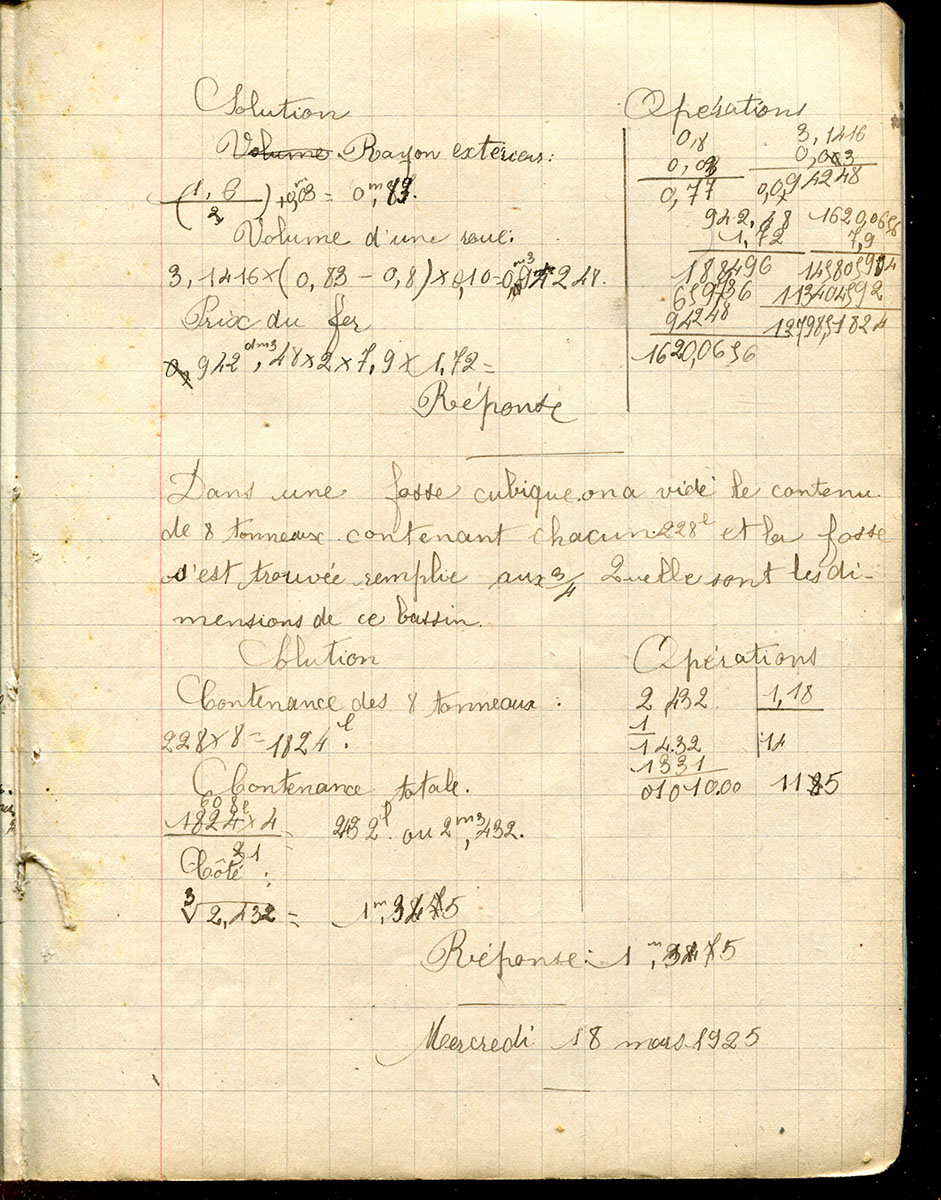 Solution
Volume Rayon extérieur:
(1,6/2) + 0,03 = 0m,83.
Volume d'une roue:
3,1416 × (0,83 - 0,8) × 0,10 = 0,m3 94248.
Prix du fer
942dm3,48 × 2 × 7,9 × 1,72 =
Réponse
Opérations
0,8 3,1416
0,03 0,003
0,77 0,0094248
942,48 1620,0656
1,72 7,9
188496 145805904
659736 113404592
94248 12798,51824
1620,0656
Dans une fosse cubique on a vidé le contenu
de 8 tonneaux contenant chacun 228l et la fosse
s'est trouvée remplie aux 3/4 Quelle sont les di-
mensions de ce bassin.
Solution
Contenance des 8 tonneaux:
228 × 8 = 1824l.
Contenance totale.
608l
1824 × 4 / 31 = 2432l ou 2m3,432.
Côté:
3√2,432 = 1m,3475
Opérations
2,432 1,18
1
1432 14
1331
0101000 1185
Réponse: 1m,3475
Mercredi 18 mars 1925